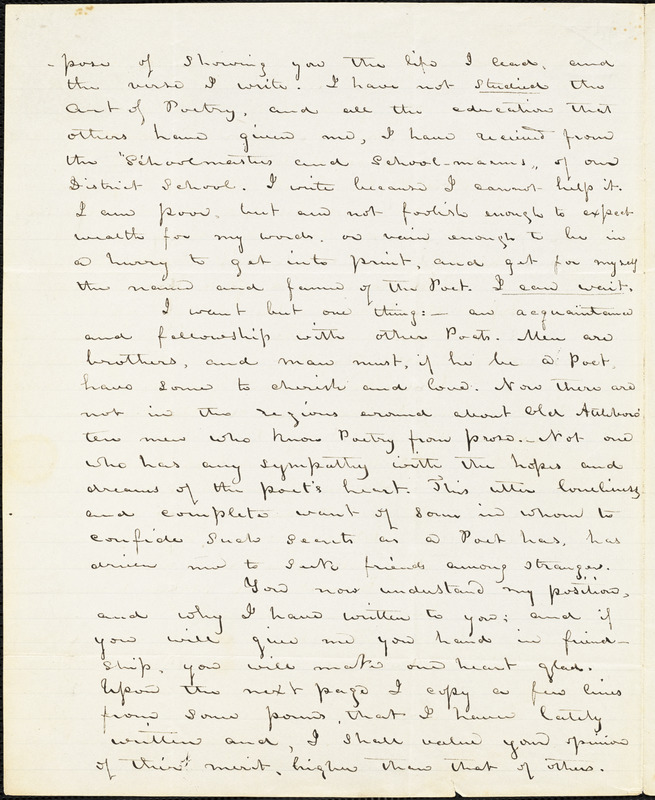 -pose of showing you the life I lead, and
the verse I write. I have not studied the
Art of Poetry, and all the education that
others have given me, I have received from
the "Schoolmasters and School-marms" of our
District School. I write because I cannot help it.
I am poor, but am not foolish enough to expect
wealth for my words, or vain enough to be in
a hurry to get into print, and get for myself
the name and fame of the Poet. I can wait.
I want but one thing:— an acquaintance
and fellowship with other Poets. Men are
brothers, and man must, if he be a Poet,
have some to cherish and love. Now there are
not in the regions around about Old Attleboro
ten men who know Poetry from prose.— Not one
who has any sympathy with the hopes and
dreams of the poet's heart. This utter loneliness
and complete want of some in whom to
confide such secrets as a Poet has, has
driven me to seek friends among strangers.
You now understand my position,
and why I have written to you; and if
you will give me you hand in friend-
ship, you will make one heart glad.
Upon the next page I copy a few lines
from some poems, that I have lately
written and, I shall value your opinion
of their merit, higher than that of others.